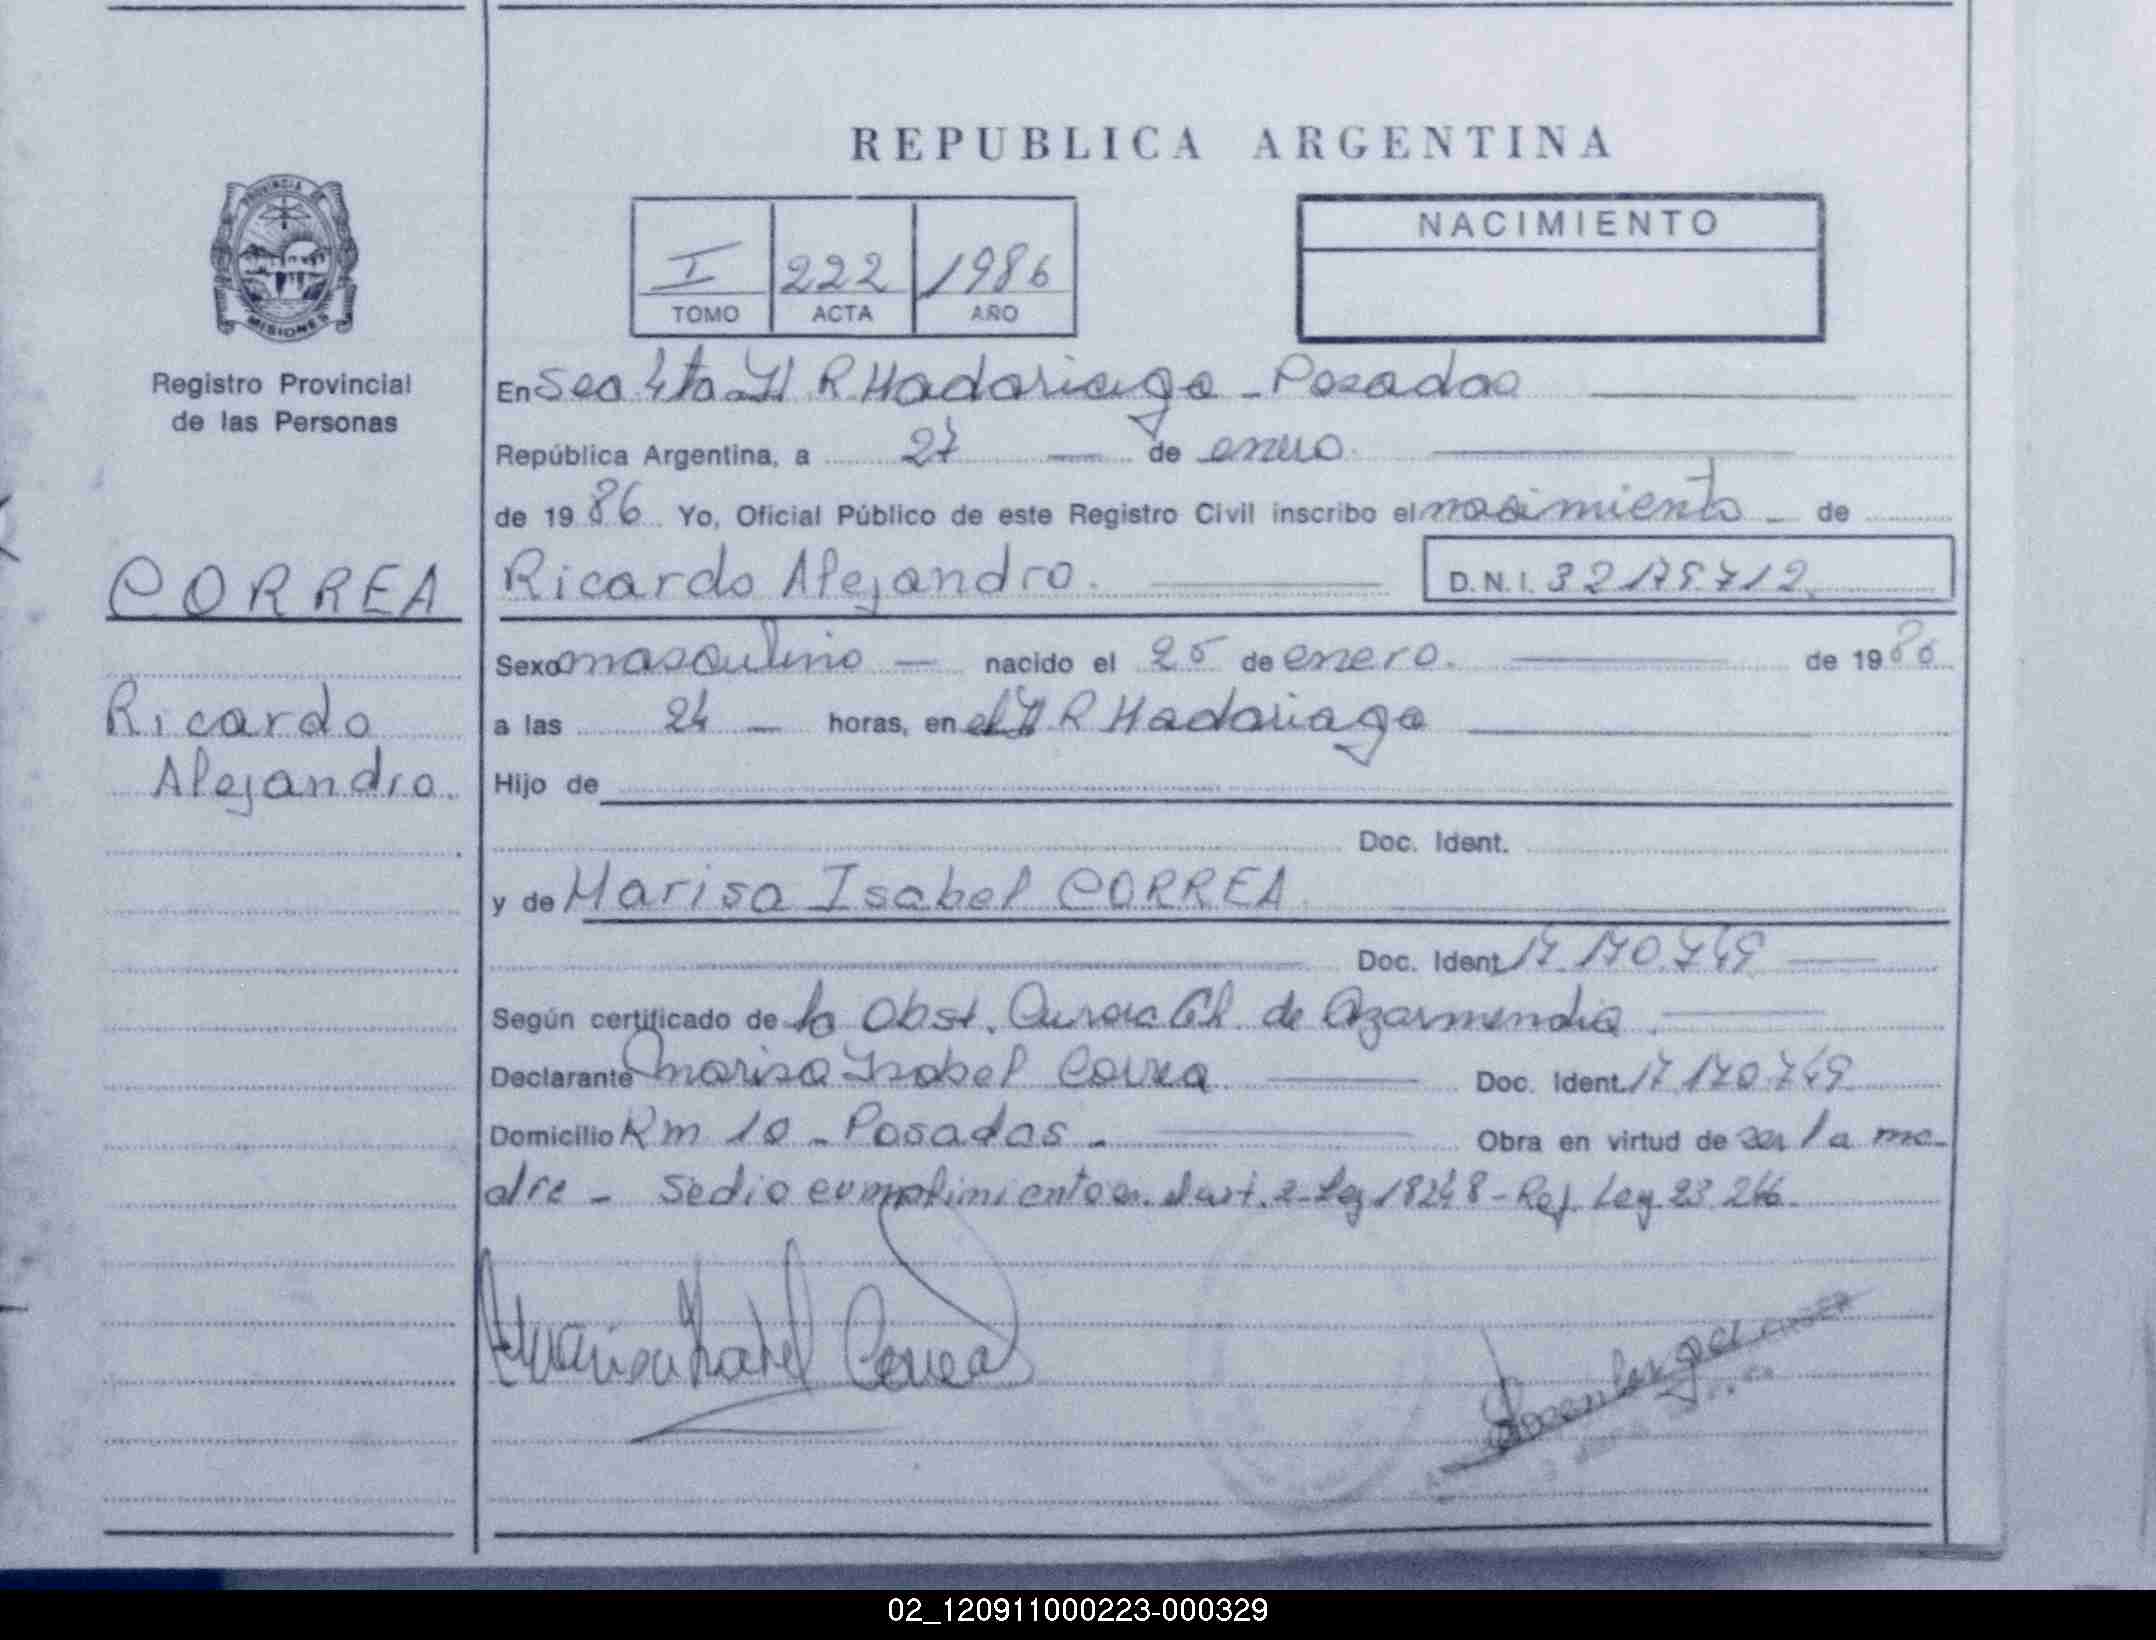 REPUBLICA ARGENTINA
PROVINCIA DE
MISIONES
Registro Provincial
de las Personas
I 222 1986
TOMO ACTA AÑO
NACIMIENTO
En Sec 4ta H R Madariaga - Posadas
República Argentina, a 27 de enero
de 1986 Yo, Oficial Público de este Registro Civil inscribo el nacimiento - de
CORREA
Ricardo Alejandro. D.N.I. 32175.712
Sexo masculino - nacido el 25 de enero. de 1986
Ricardo
Alejandro.
a las 24 - horas, en el H R Madariaga
Hijo de
Doc. Ident.
y de Marisa Isabel CORREA
Doc. Ident. 17 170.749
Según certificado de la Obst. Aurora de Azarmendia
Declarante Marisa Isabel Correa Doc. Ident. 17 170.749
Domicilio Km 10 - Posadas - Obra en virtud de ser la ma-
dre - Se dio cumplimiento en el art. 2 - Ley 18248 - Ref. Ley 23.246
Marisa Isabel Correa
02_120911000223-000329